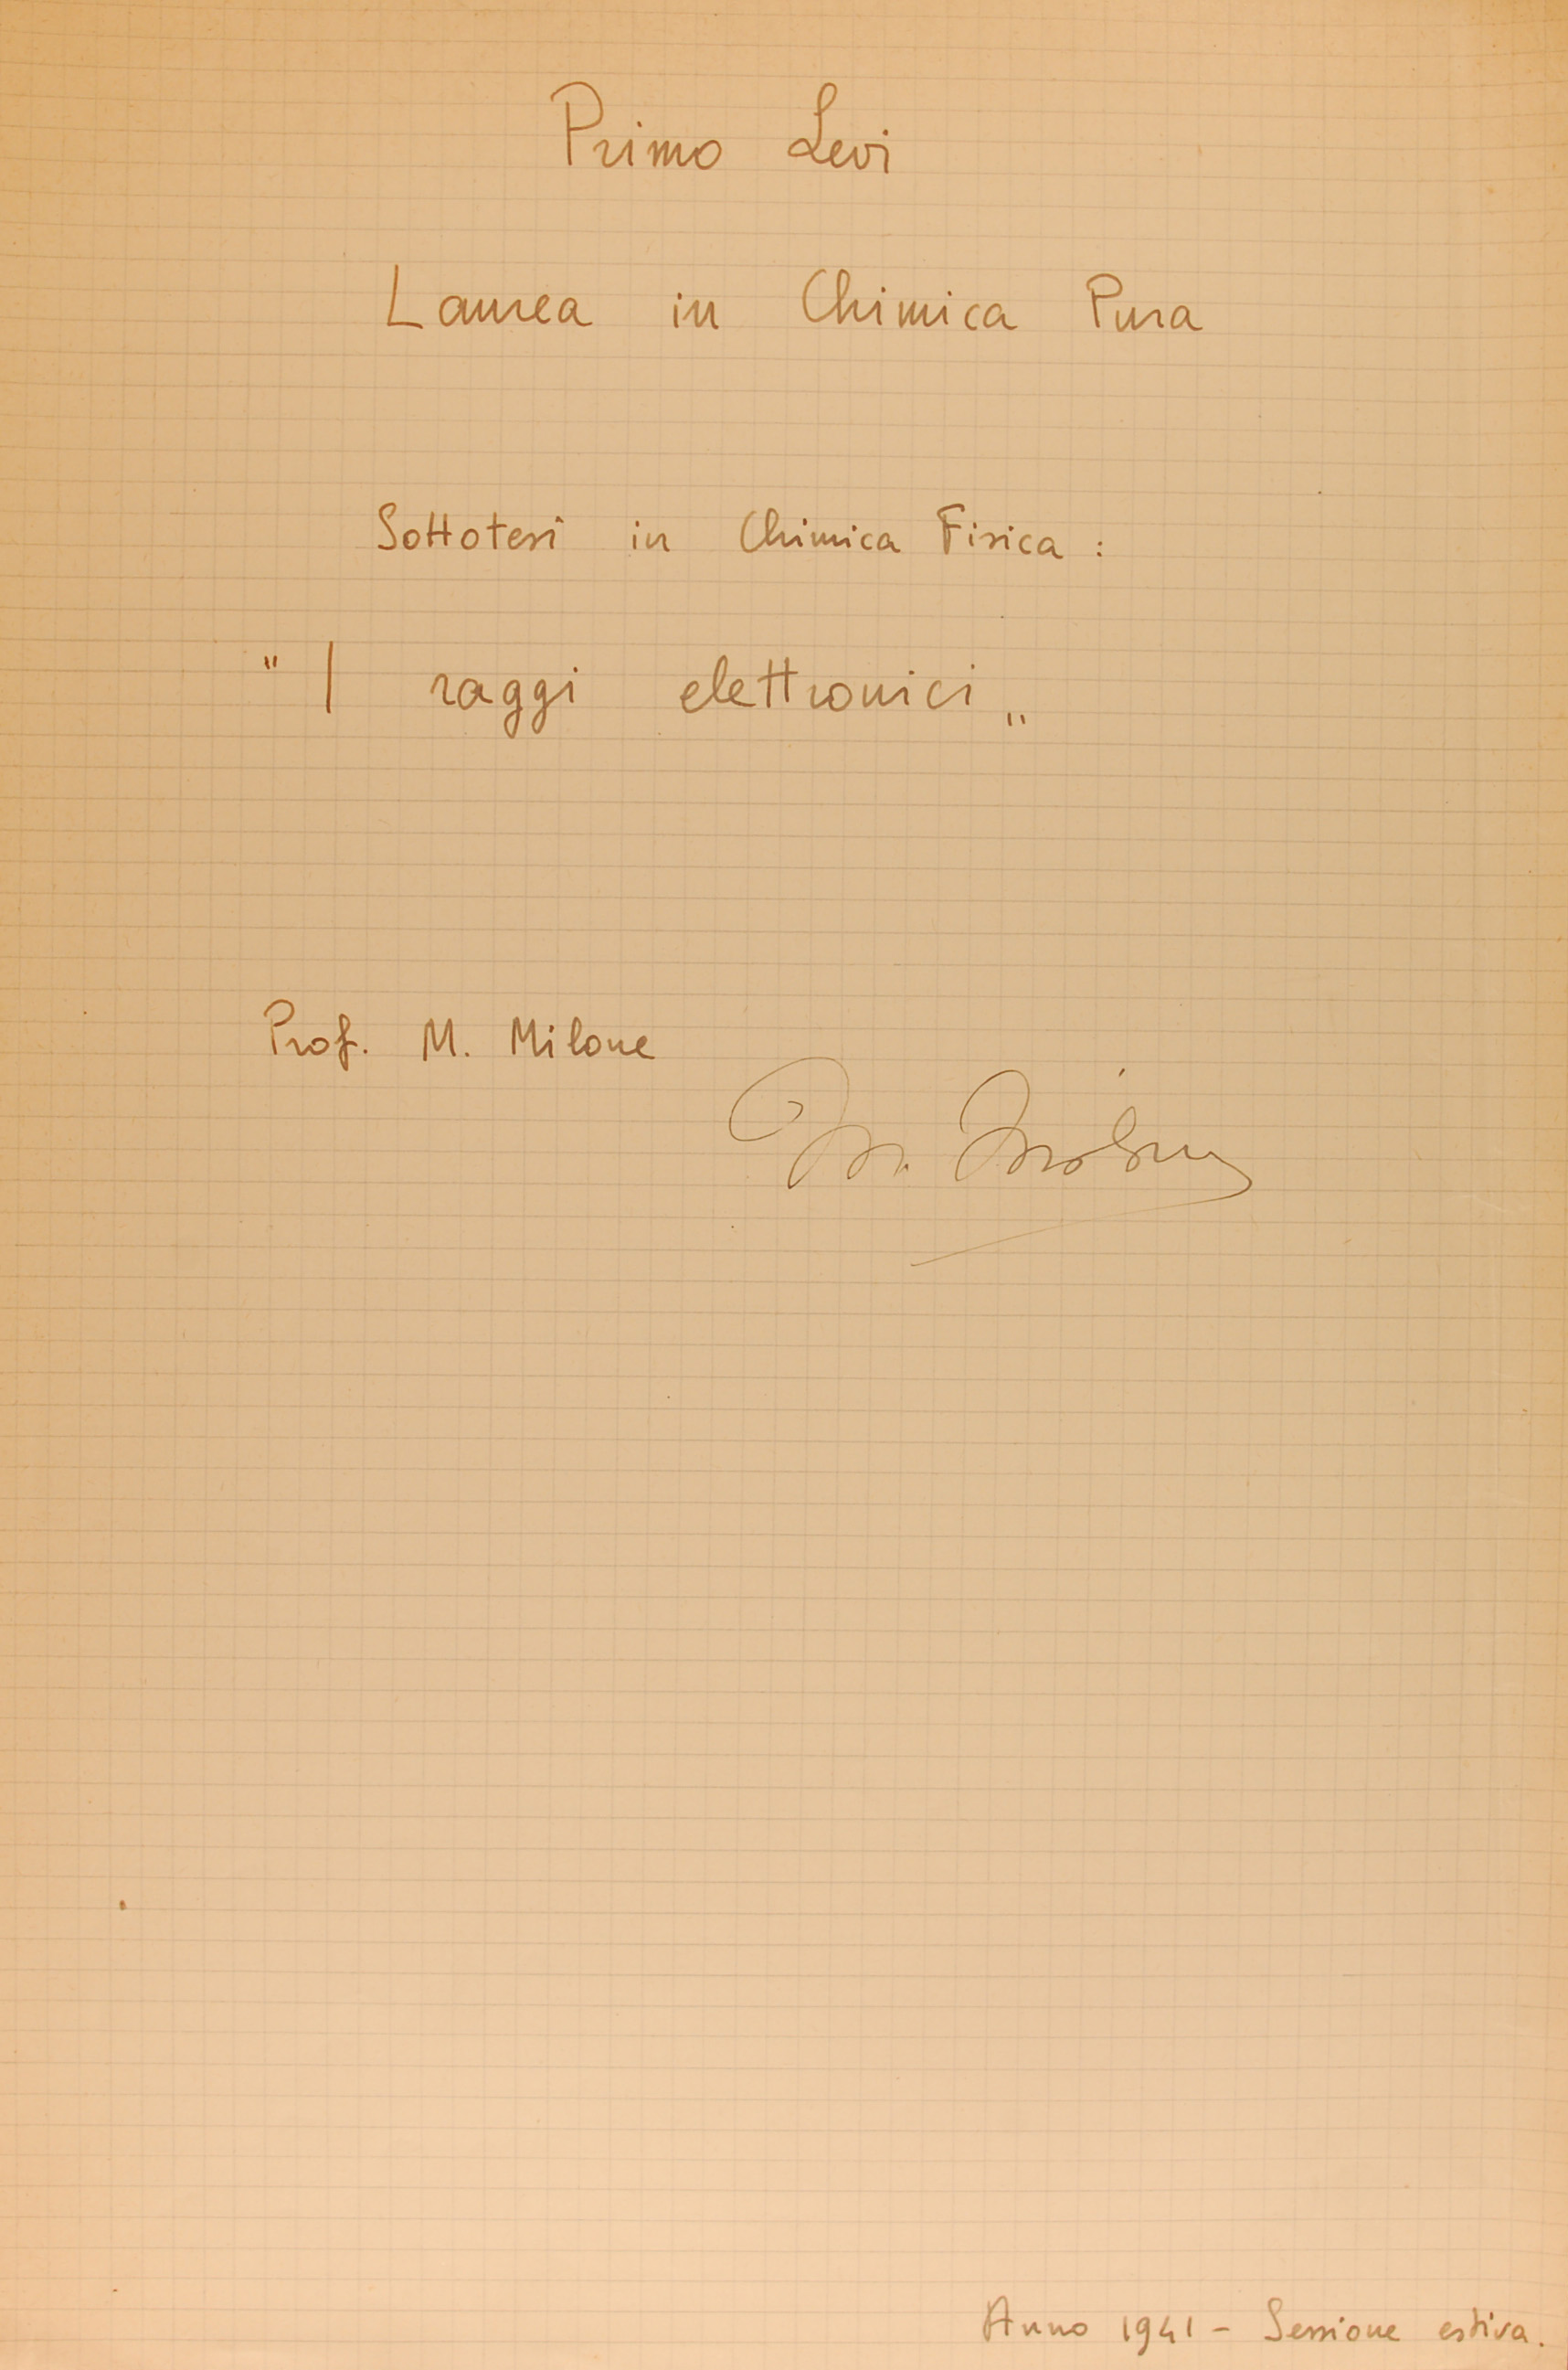 Primo Levi
Laurea in Chimica Pura
Sottotesi in Chimica Fisica :
" I raggi elettronici „
Prof. M. Milone
M. Milone
Anno 1941 - Sessione estiva.